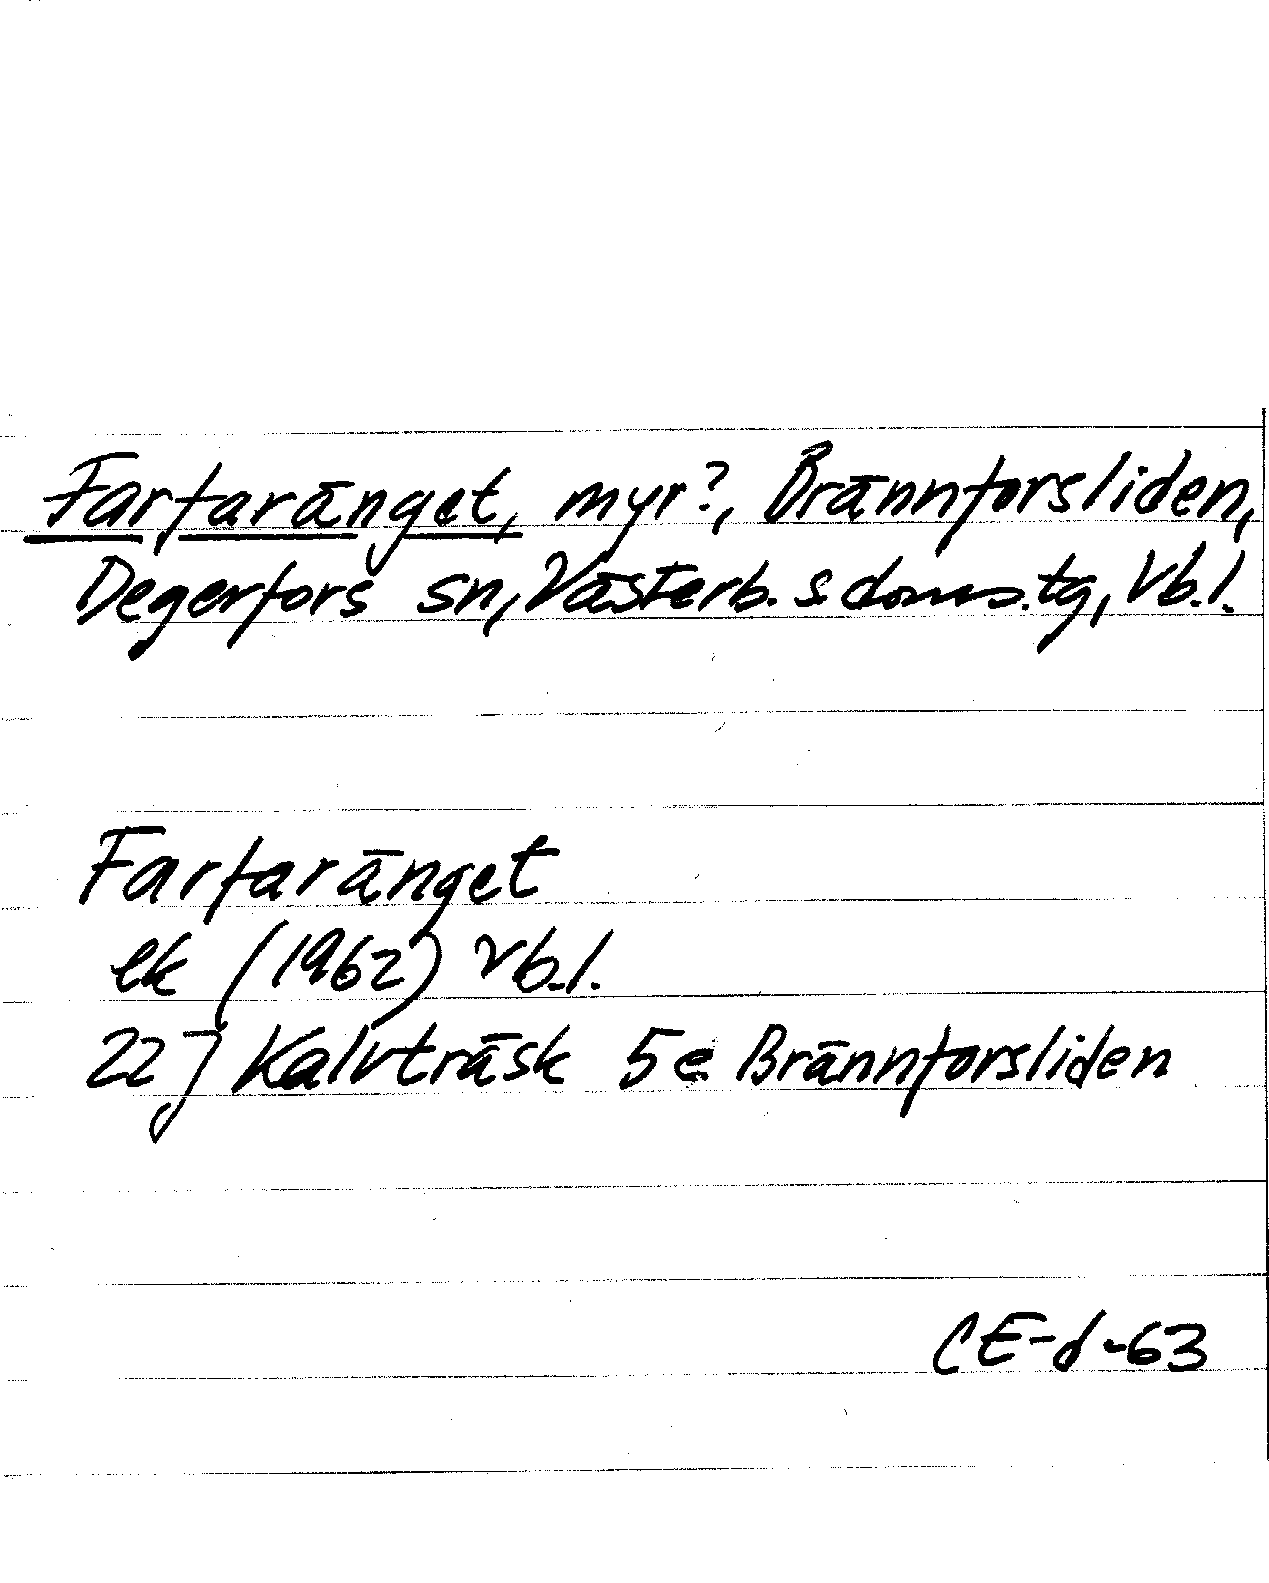 Farfaränget, myr?, Brännforsliden,
Degerfors sn, Västerb. s doms.tg, Vb.l.
Farfaränget
ek (1962) Vb.l.
22 J Kalvträsk 5e Brännforsliden
CE-d-63